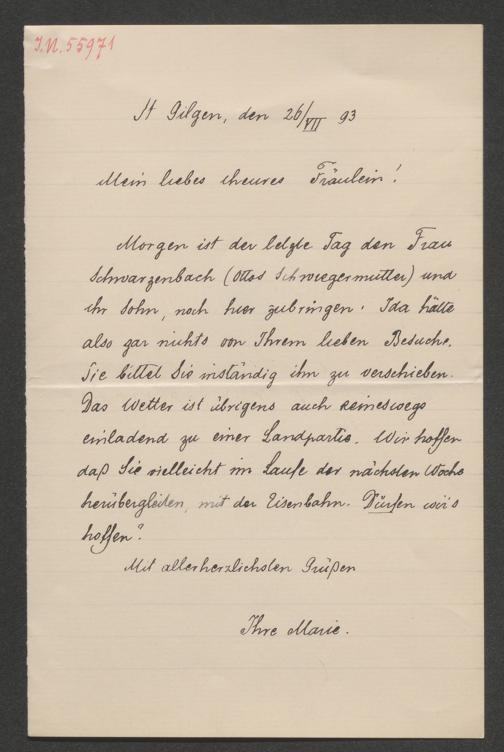 I.N. 55971
St Gilgen, den 26/VII 93
Mein liebes theures Fräulein!
Morgen ist der letzte Tag den Frau
Schwarzenbach (Ottos Schwiegermutter) und
ihr Sohn, noch hier zubringen. Ida hätte
also gar nichts von Ihrem lieben Besuche.
Sie bittet Sie inständig ihn zu verschieben.
Das Wetter ist übrigens auch keineswegs
einladend zu einer Landpartie. Wir hoffen
daß Sie vielleicht im Laufe der nächsten Woche
herübergleiten, mit der Eisenbahn. Dürfen wir's
hoffen?
Mit allerherzlichsten Grüßen
Ihre Marie.